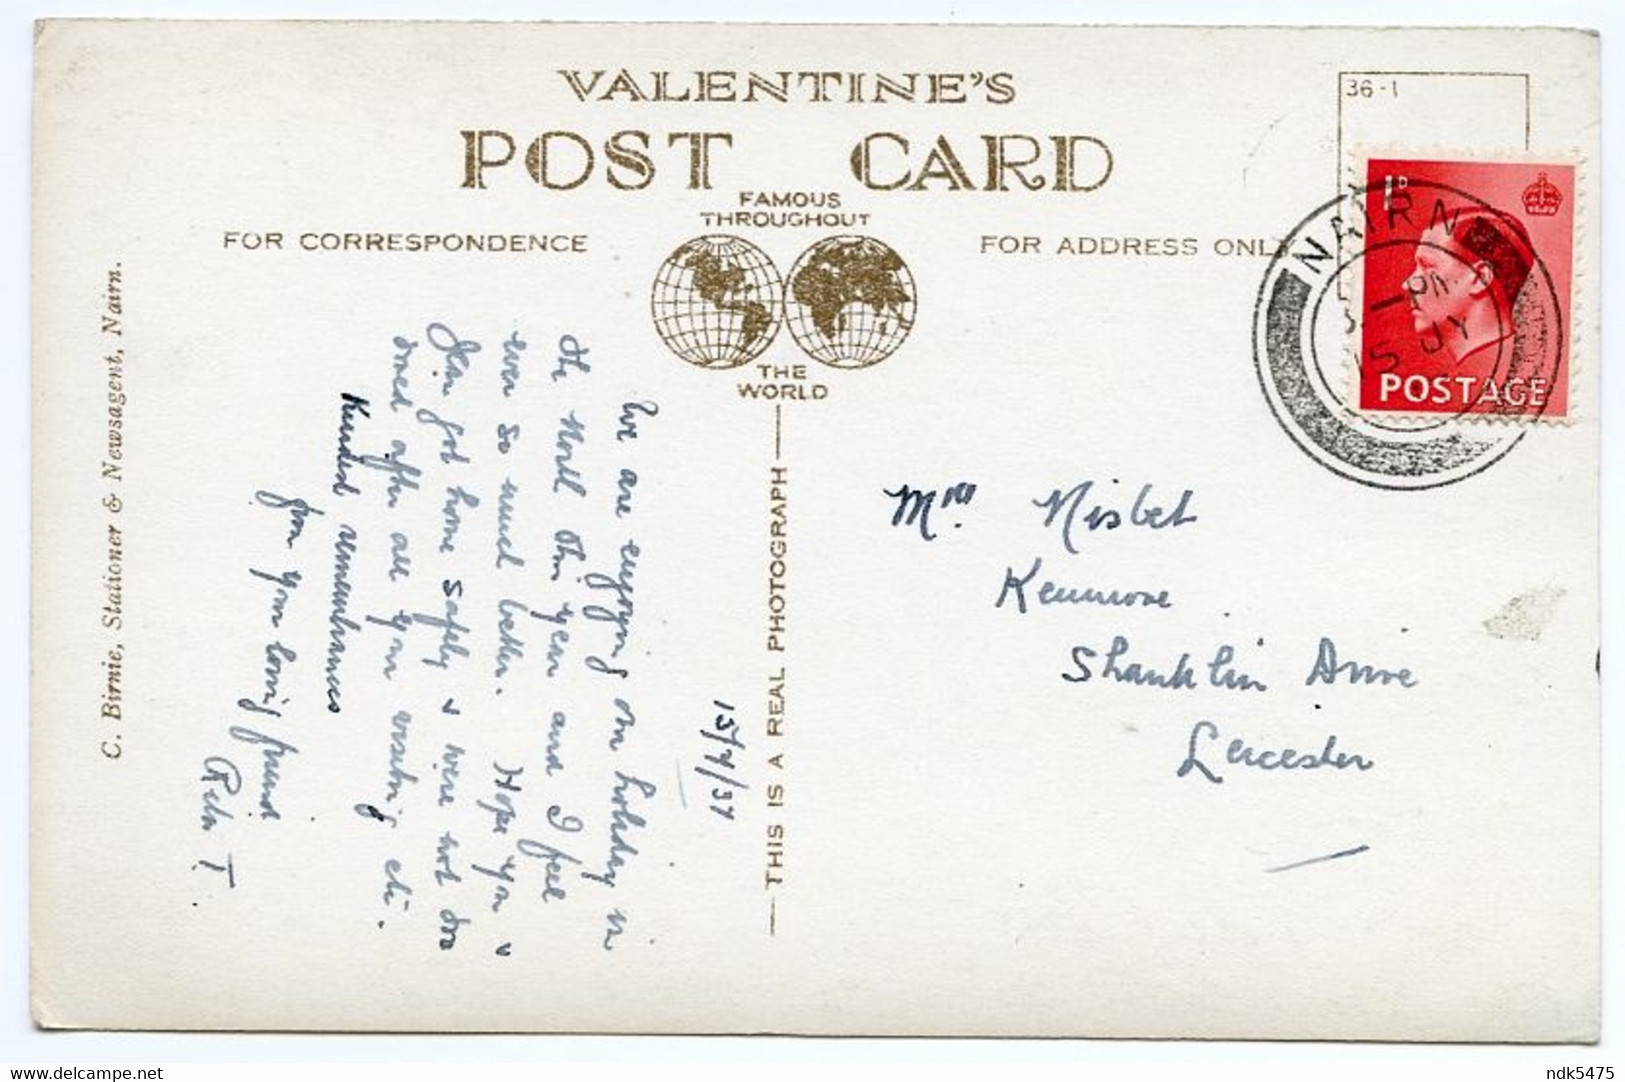 VALENTINE'S
POST CARD
FAMOUS
THROUGHOUT
THE
WORLD
FOR CORRESPONDENCE
FOR ADDRESS ONLY
36-1
1D
POSTAGE
NAIRN
PM
15 JY
C. Birnie, Stationer & Newsagent, Nairn.
THIS IS A REAL PHOTOGRAPH
15/7/37
We are enjoying our holiday in
the North this year and I feel
ever so much better. Hope you &
Jean got home safely & were not too
tired after all your visiting etc.
Kindest remembrances
from your loving friend
Rita T.
Mrs Nisbet
Kenmore
Shanklin Drive
Leicester
delcampe.net
ndk5475